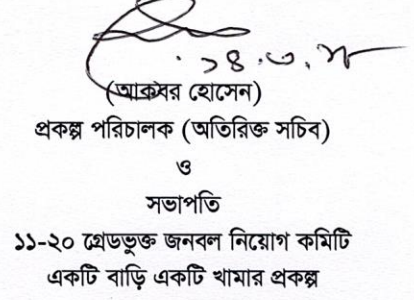 ১৪.৩.১৮
(আকবর হোসেন)
প্রকল্প পরিচালক (অতিরিক্ত সচিব)
ও
সভাপতি
১১-২০ গ্রেডভুক্ত জনবল নিয়োগ কমিটি
একটি বাড়ি একটি খামার প্রকল্প